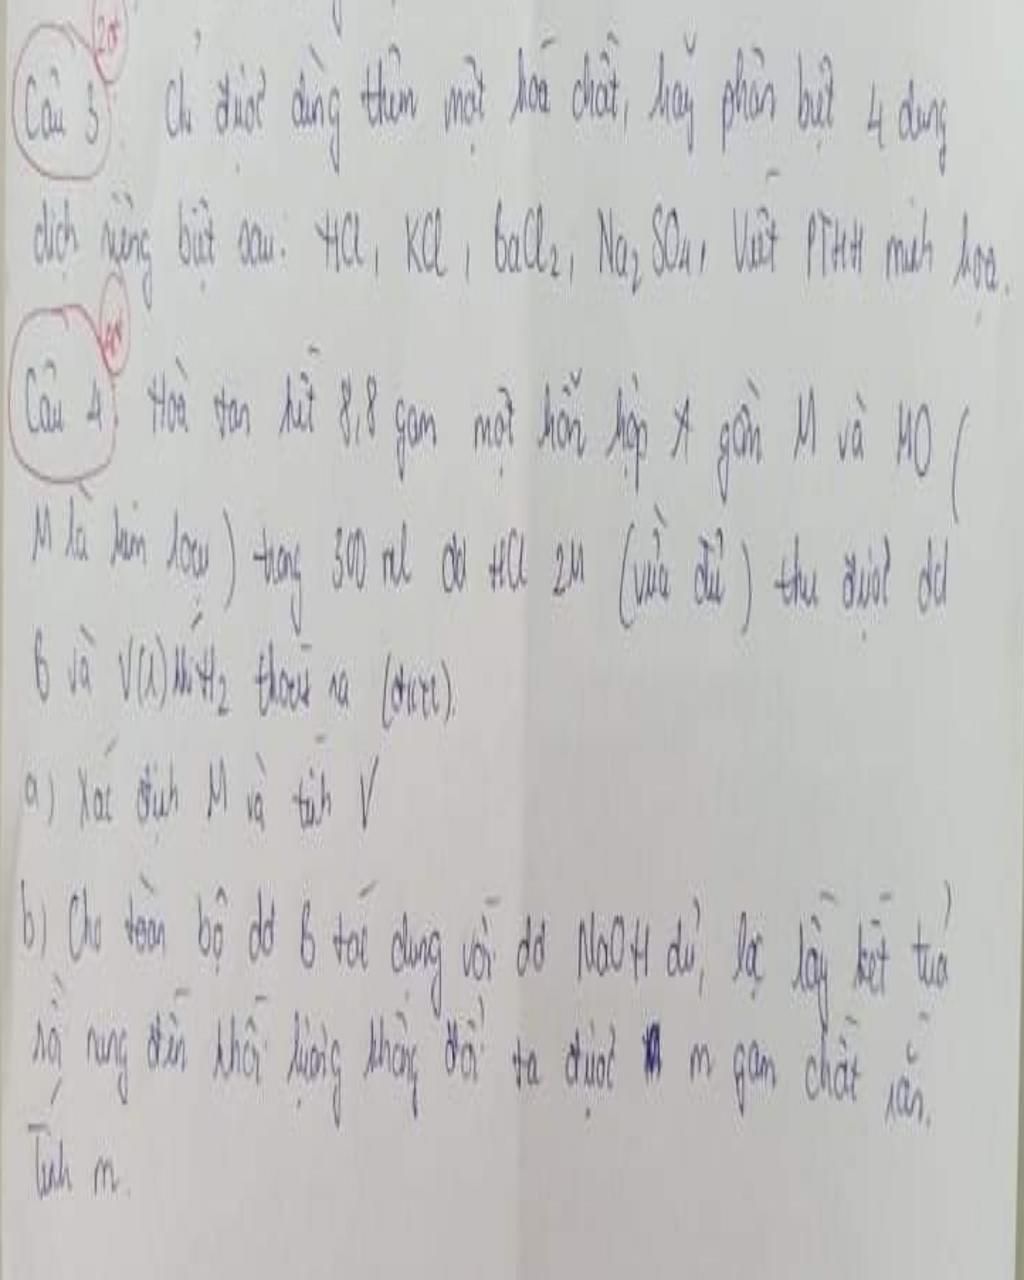 Câu 3 2đ Chỉ được dùng thêm một hoá chất, hãy phân biệt 4 dung
dịch riêng biệt sau: HCl, KCl, BaCl2, Na2SO4. Viết PTHH minh hoạ.
Câu 4: Hoà tan hết 8,8 gam một hỗn hợp A gồm M và MO (
M là kim loại) trong 300 ml dd HCl 2M (vừa đủ) thu được dd
B và V(l) khí H2 thoát ra (đktc).
a) Xác định M và tính V
b) Cho toàn bộ dd B tác dụng với dd NaOH dư, lọc lấy kết tủa
rồi nung đến khối lượng không đổi ta được m gam chất rắn.
Tính m.